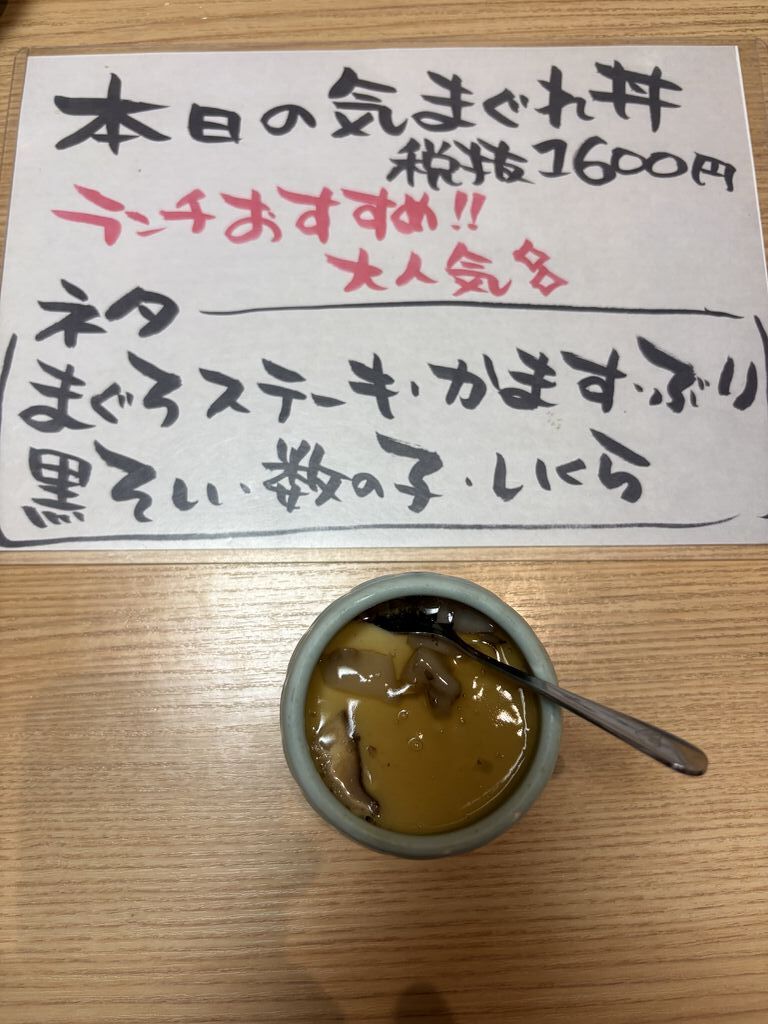 本日の気まぐれ丼
税抜1600円
ランチおすすめ!!
大人気
ネタ
まぐろステーキ・かます・ぶり
黒そい・数の子・いくら